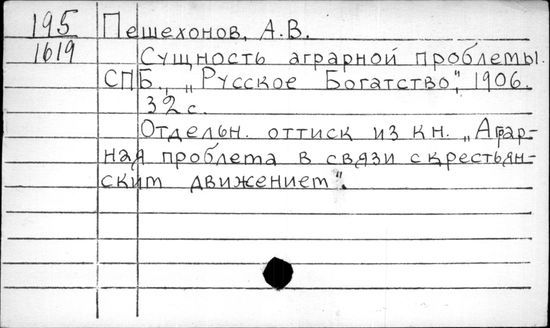 195 Пешехонов, А.В.
1619 Сущность аграрной проблемы.
СПБ., „Русское Богатство", 1906.
32 с.
Отдельн. оттиск из кн. „Аграр-
ная проблема в связи с крестьян-
ским движением".